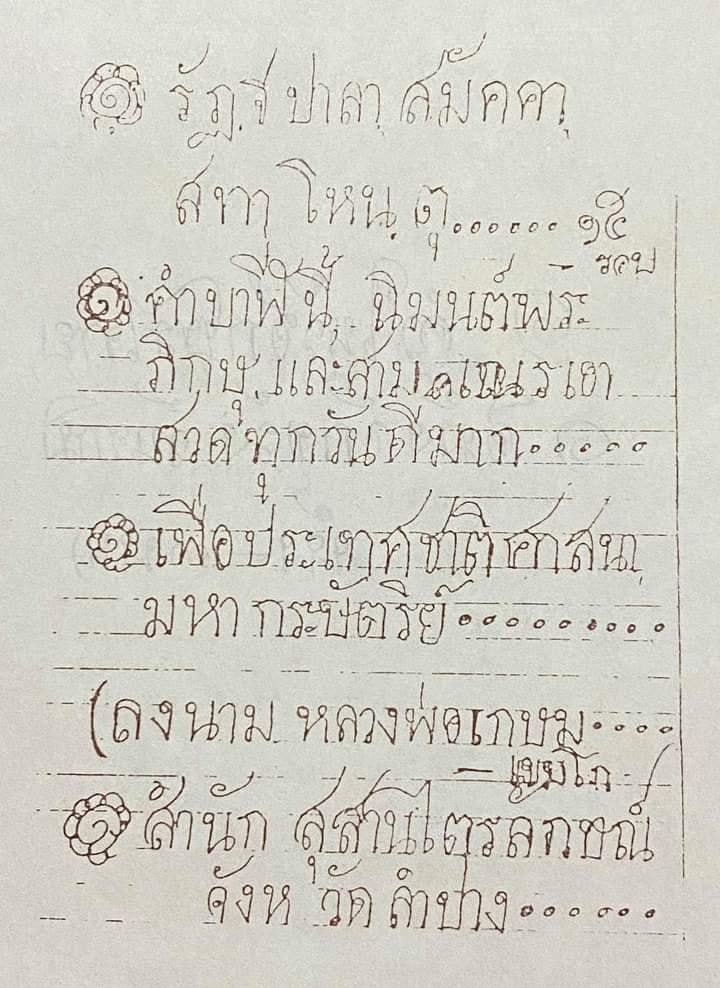 ๑ รัฏ.ฐี ปาลา. สมัคคา.
สทา. โหน.ตุ...... ๑๕
รอบ
๑ คำบาฬีนี้, นิมนต์พระ
ภิกษุ. และสามเณรเอา
สวดทุกวันดีมาก.....
๑ เพื่อประเทศชาติศาสนา
มหากระษัตริย์.........
(ลงนาม หลวงพ่อเกษม....
— เขมโก
๑ สำนัก สุสานไตรลักษณ์
จังหวัด ลำปาง......